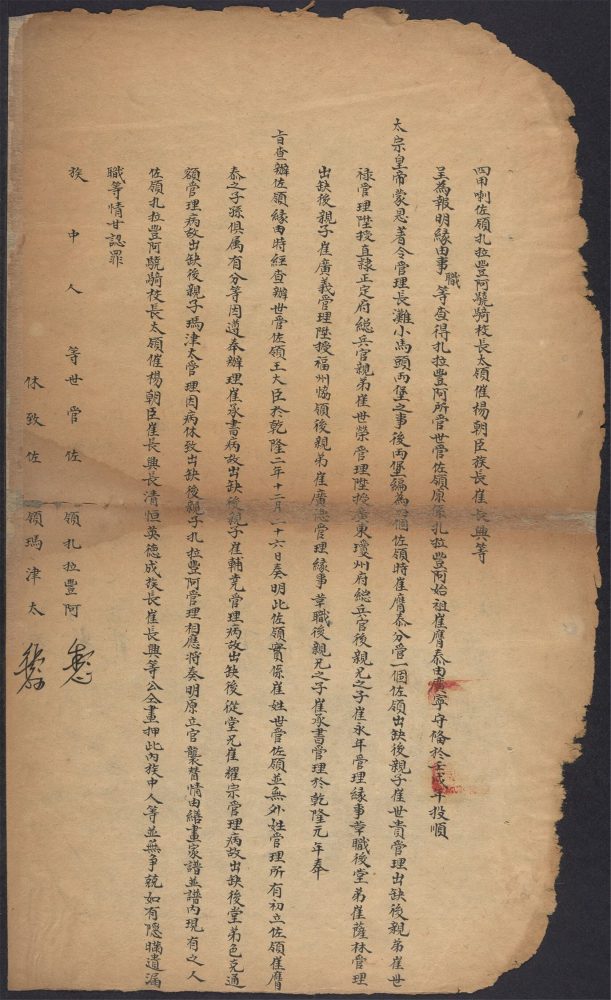 四甲喇佐領扎拉豐阿驍騎校長太領催楊朝臣族長崔長興等
呈為報明緣由事職等查得扎拉豐阿所管世管佐領原係扎拉豐阿始祖崔膺泰由廣寧守備於壬戌年投順
太宗皇帝蒙恩著令管理長灘小馬頭兩堡之事後兩堡編為 個佐領時崔膺泰分管一個佐領出缺後親子崔世貴管理出缺後親弟崔世
祿管理陞授直隸正定府總兵官親弟崔世榮管理陞授廣東瓊州府總兵官後親兄之子崔永年管理緣事革職後堂弟崔薩林管理
出缺後親子崔廣義管理陞授福州協領後親弟崔廣德管理緣事革職後親兄之子崔承書管理於乾隆元年奉
旨查辦佐領緣由時經查辦世管佐領王大臣於乾隆二年十二月二十六日奏明此佐領實係崔姓世管佐領並無外姓管理所有初立佐領崔膺
泰之子孫俱屬有分等因遵奉辦理崔承書病故出缺後親子崔輔堯管理病故出缺後從堂兄崔耀宗管理病故出缺後堂弟色克通
額管理病故出缺後親子瑪津太管理因病休致出缺後親子扎拉豐阿管理相應將奏明原立官襲替情由繕畫家譜並譜內現有之人
佐領扎拉豐阿驍騎校長太領催楊朝臣崔長興長清恒英德成族長崔長興等公仝畫押此內族中人等並無爭競如有隱瞞遺漏
職等情甘認罪
族中人等世管佐領扎拉豐阿
休致佐領瑪津太